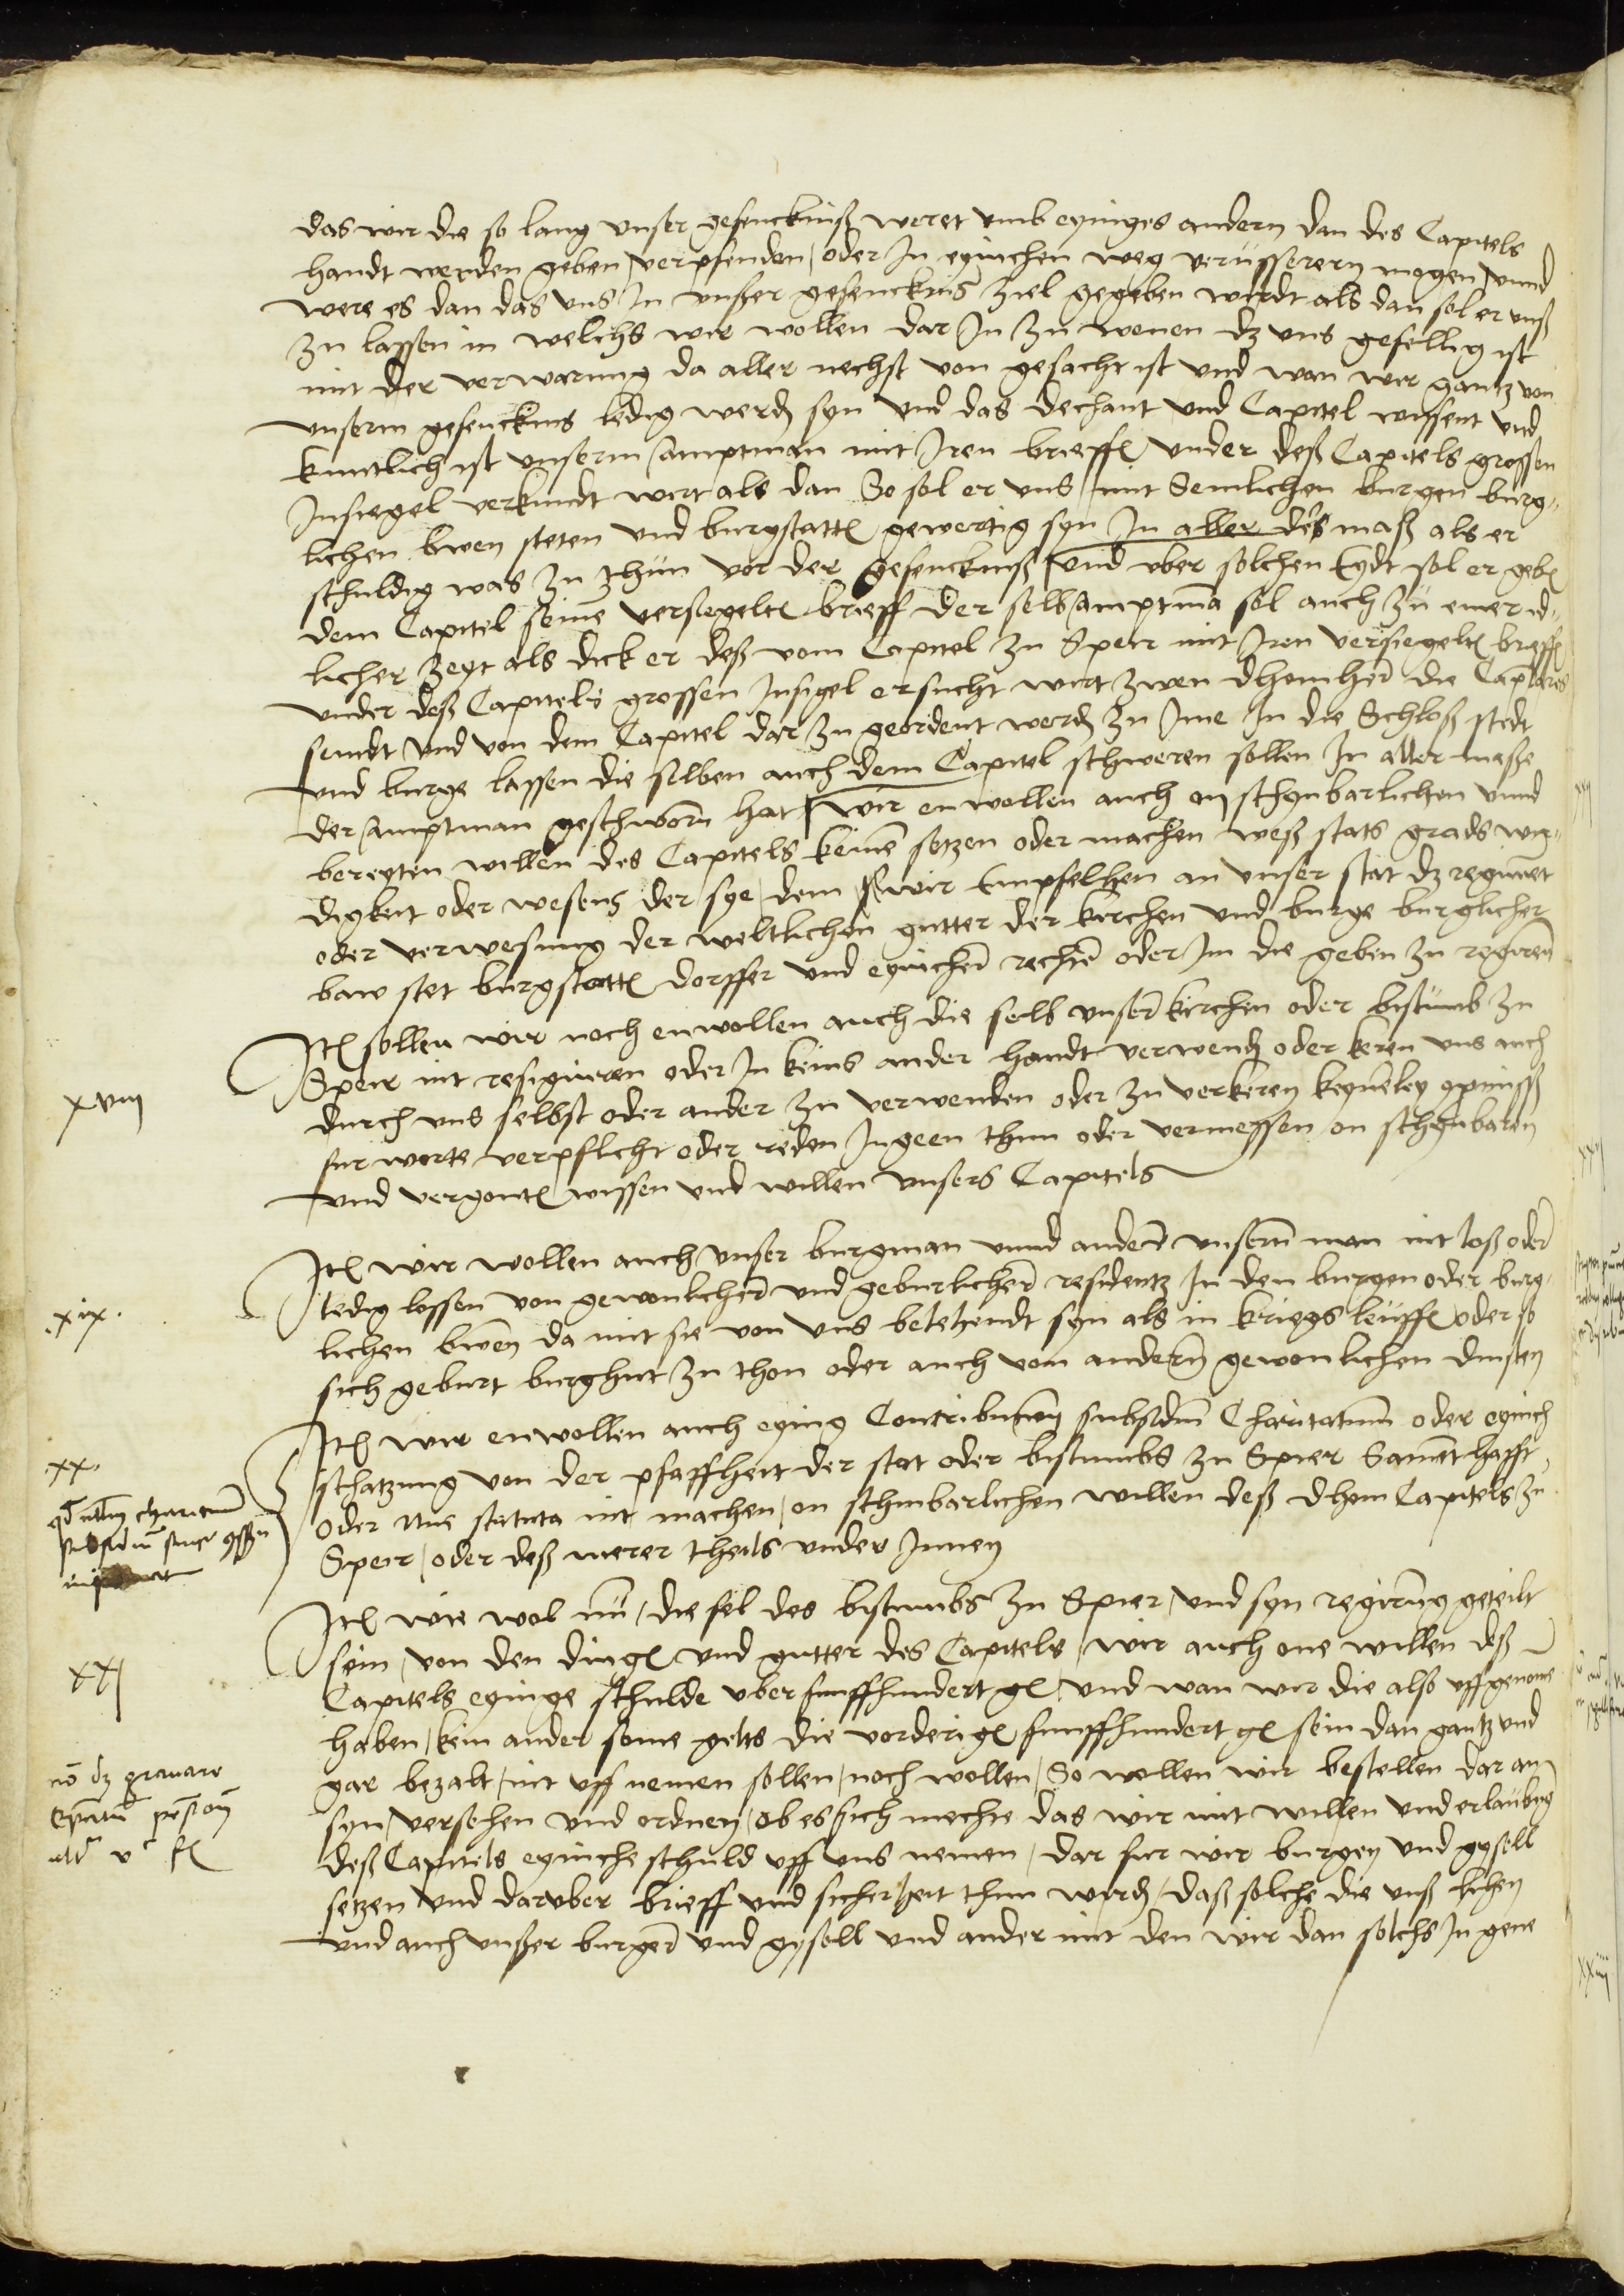 das wir die so lang unser gefenckniß weret umb eyniges andern dan des Capitels
handt werden geben / verpfenden / oder In eynichen weg verüsseren mogen / unnd
were es dan das uns In unser gefencknis ziel gegeben wirdt als dan sol er unß
zu lassen in welchs wir wollen dar In zu wonen dz uns gefellig ist
mit der verwarung da aller nechst von gesacht ist und wan wir gantz von
unserm gefencknis ledig werd syn und das dechant und Capitel wissent und
kuntlich ist unserm amptman mit Iren brieff under deß Capitels grossen
Insiegel verkundt wirt als dan So sol er uns mit Semlichen burgen burg-
lichen bwen steten und burgstatt gewertig syn In aller der maß als er
schuldig was zu thun vor der gefenckniß / und uber solchen Eydt sol er geb
dem Capitel seine versiegelt brieff der selb amptma sol auch zu einer id-
licher zeyt als dick er deß vom Capitel zu Speir mit Iren versiegelt brieff
under deß Capitels grossen Insigel ersucht wirt zwen dhomher die Caplares
seindt und von dem Capitel dar zu geordent werd zu Ime In die Schloß stedt
und burge lassen die selben auch dem Capitel schweren sollen In aller maße
der amptman geschworn hat / wir enwollen auch on schynbarlichen unnd
bereyten willen des Capitels keine setzen oder machen weß stats grads wir-
digkeit oder wesens der sye / dem wir Empfelhen an unser stat dz regiment
oder verwesung der weltlichen gutter der kirchen und burge burglicher
baw stet burgstatt dorffer und eynicher rechte oder Im die geben zu regiren
Ite sollen wir noch enwollen auch die selb unser kirchen oder bistumb zu
Speir nit resigniren oder In keins ander handt verwend oder keren uns auch
durch uns selbst oder ander zu verwenden oder zu verkeren keynerley
furworte verpflicht oder reden Ingeen thun oder vermessen on schynbaren
und vergont wissen und willen unsers Capitels
xviii
Ite wir wollen auch unser burgman unnd andere unsern man nit loß oder
ledig lossen von gewonlicher und geburlicher residentz In den burgen oder burg-
lichen bwen da mit sie von uns belehendt syn als in kriegs leuff oder so
sich geburt burghut zu thon oder auch von andern gewonlichen dinsten
.xix.
Ite wir enwollen auch eynig Contribution subsidiu Charitativum oder eynich
schatzung von der pfaffheit der stat oder bistumbs zu Spier Samethafft
oder nue statuta nit machen / on schinbarlichen willen deß dhem Capitels zu
Speir / oder deß merer theils under Innen
.xx.
Ite wie wol nu / die sel des bistumbs zu Spier / und syn regirung geteilt
sein / von den ding und gutter des Capitels / wir auch one willen deß
Capitels eynige schulde uber funffhundert g / und wan wir die also uffgenome
haben / kein ander some gelts die vorderig funffhundert g sein dan gantz und
gar bezalt / nit uff nemen sollen / noch wollen / So wollen wir bestellen dar an
syn / versehen und ordnen / ob es sich mechte das wir mit willen und erlaubng
deß Capitels eyniche schuld uff uns nemen / dar fur wir burgen und gysell
setzen und daruber brieff und sicherheit thun werd / daß solche die unß lihen
und auch unßer burger und gysell und ander mit den wir dan solchs In gene
xxi